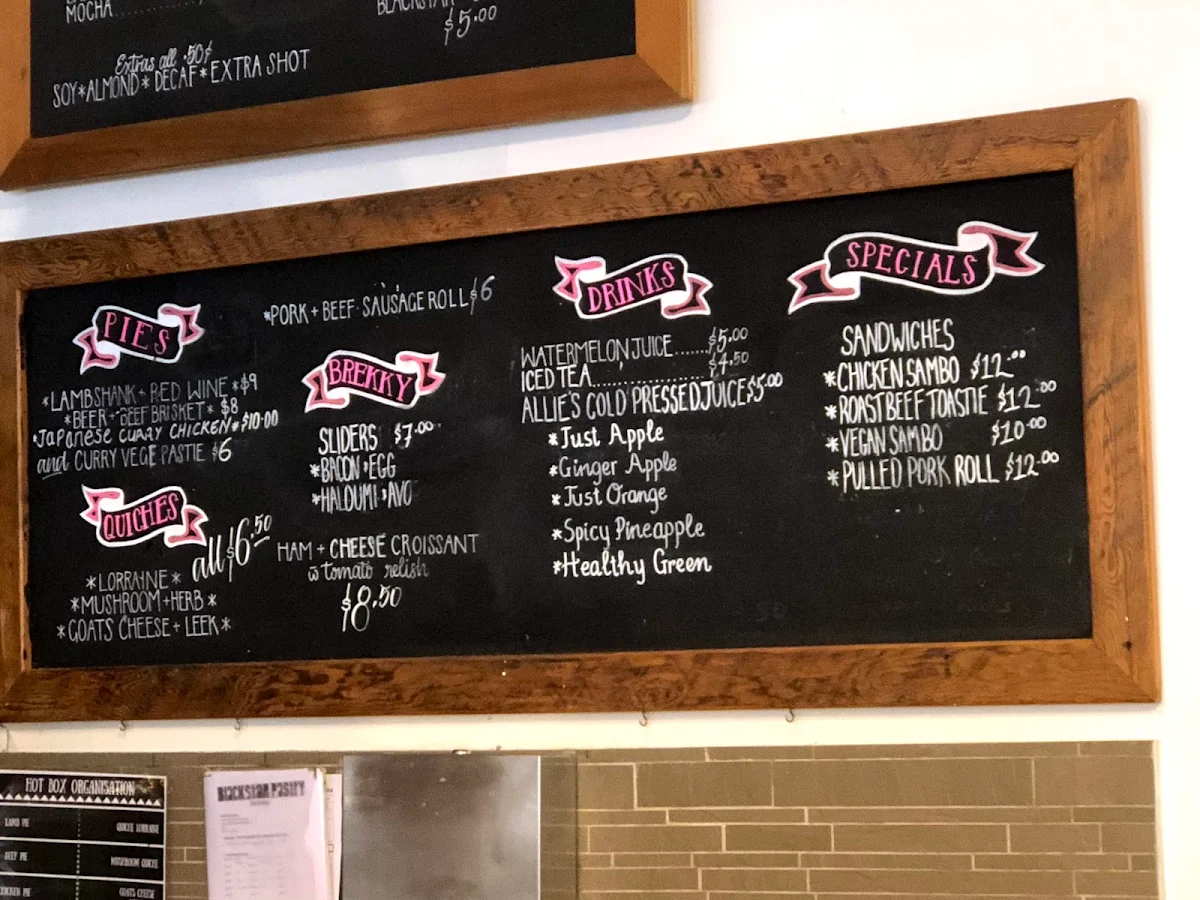 MOCHA
$5.00
Extras all .50¢
SOY*ALMOND*DECAF*EXTRA SHOT
PIES
*LAMBSHANK + RED WINE *$9
*BEER + BEEF BRISKET * $8
*Japanese curry chicken*$10.00
and CURRY VEGE PASTIE $6
QUICHES
all $6.50
*LORRAINE*
*MUSHROOM + HERB *
*GOATS CHEESE + LEEK*
*PORK + BEEF SAUSAGE ROLL $6
BREKKY
SLIDERS $7.00
*BACON + EGG
*HALOUMI + AVO
HAM + CHEESE CROISSANT
w tomato relish
$8.50
DRINKS
WATERMELON JUICE.......$5.00
ICED TEA..................$4.50
ALLIE'S COLD PRESSED JUICE $5.00
*Just Apple
*Ginger Apple
*Just Orange
*Spicy Pineapple
*Healthy Green
SPECIALS
SANDWICHES
*CHICKEN SAMBO $12.00
*ROAST BEEF TOASTIE $12.00
*VEGAN SAMBO $10.00
*PULLED PORK ROLL $12.00
HOT BOX ORGANISATION
LAMB PIE
QUICHE LORRAINE
BEEF PIE
MUSHROOM QUICHE
CHICKEN PIE
GOATS CHEESE
BLACKSTAR PASTRY